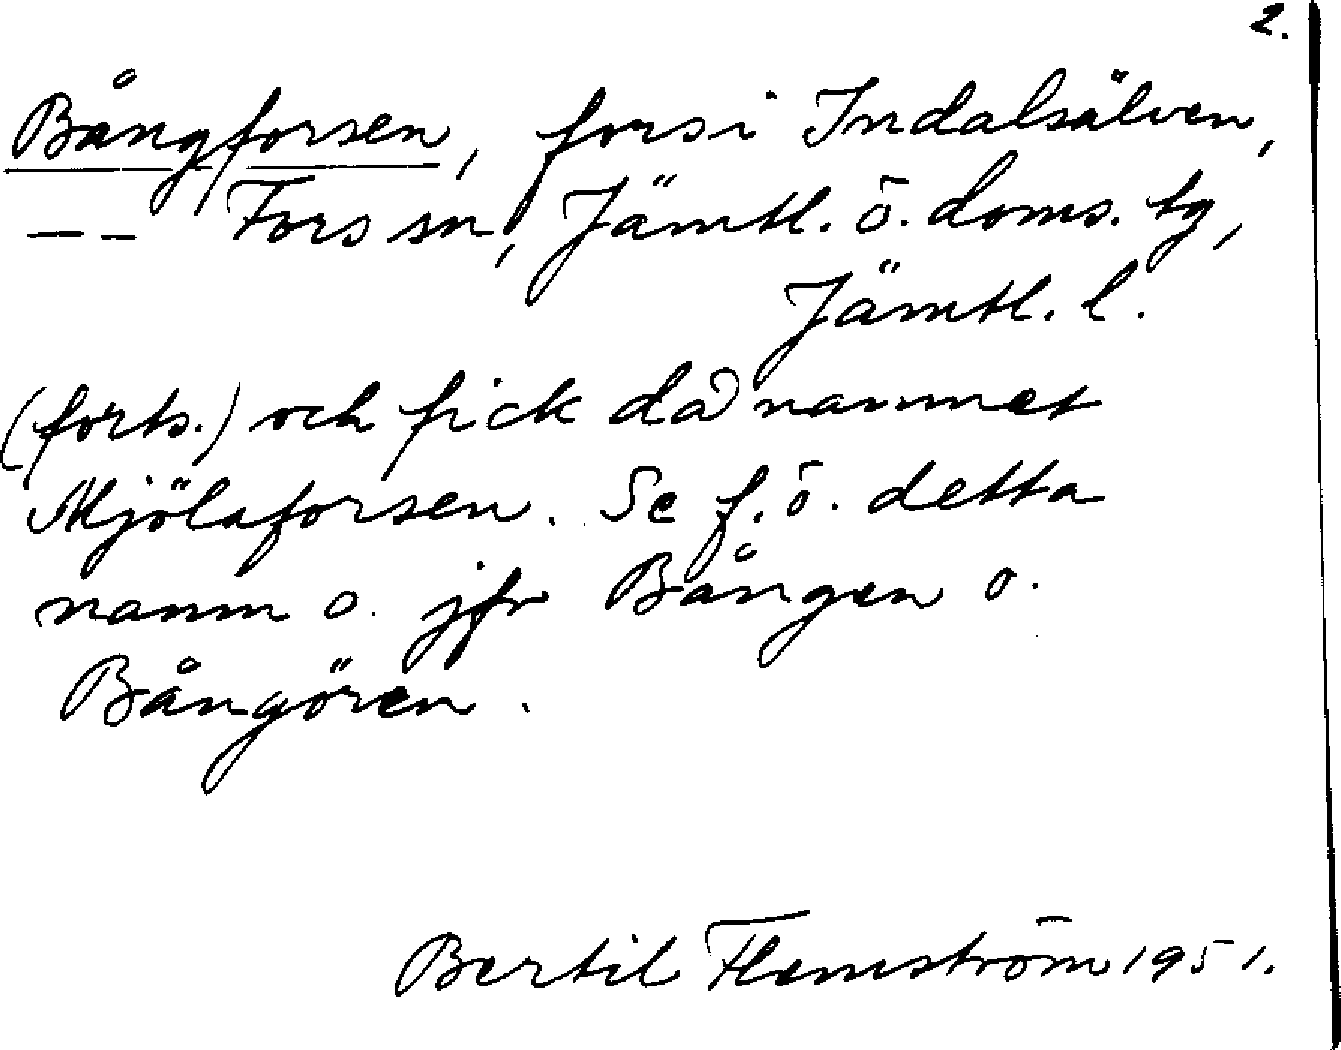 2.
Bångforsen, fors i Indalsälven,
-- Fors sn, Jämtl. ö. doms. tg,
Jämtl. l.
(forts.) och fick då namnet
Mjölaforsen. Se f. ö. detta
namn o. jfr Bången o.
Bångören.
Bertil Flemström 1951.